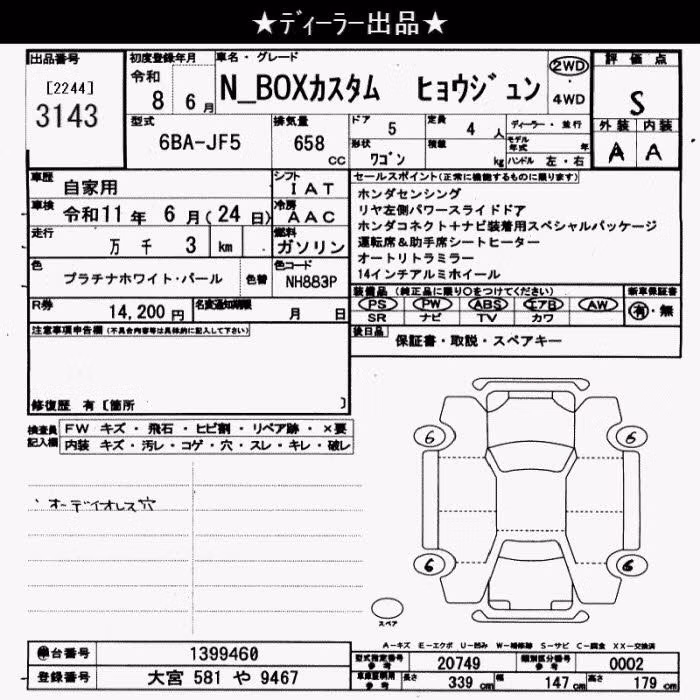 ★ディーラー出品★
出品番号
[2244]
3143
初度登録年月
令和
8 6月
車名・グレード
N_BOXカスタム ヒョウジュン
2WD
4WD
評価点
S
外装 内装
A A
型式
6BA-JF5
排気量
658
cc
ドア
5
定員
4 人
ディーラー・並行
モデル年式 年
形状
ワゴン
積載
kg
ハンドル 左・右
車歴
自家用
シフト
IAT
車検
令和11年 6月(24日)
冷房
AAC
走行
万 千 3 km
燃料
ガソリン
色
プラチナホワイト・パール
色替
色コード
NH883P
R券
14,200円
名変通知期限
月 日
セールスポイント(正常に機能するものに限ります)
ホンダセンシング
リヤ左側パワースライドドア
ホンダコネクト+ナビ装着用スペシャルパッケージ
運転席&助手席シートヒーター
オートリトラミラー
14インチアルミホイール
装備品 (純正品に限り○をつけてください)
PS PW ABS エアB AW
SR ナビ TV カワ
新車保証書
有・無
後日品
保証書・取説・スペアキー
注意事項申告欄(不具合内容等は具体的に記入して下さい)
修復歴 有〔箇所 〕
検査員記入欄
FW キズ・飛石・ヒビ割・リペア跡・×要
内装 キズ・汚レ・コゲ・穴・スレ・キレ・破レ
・オーディオレス穴
6 6
6 6
スペア
A-キズ E-エクボ U-凹み W-補修跡 S-サビ C-腐食 XX-交換済
車台番号
1399460
登録番号
大宮 581 や 9467
型式指定番号
参考
20749
類別区分番号
参考
0002
車庫証明用
参考
長さ 339 cm
幅 147 cm
高さ 179 cm